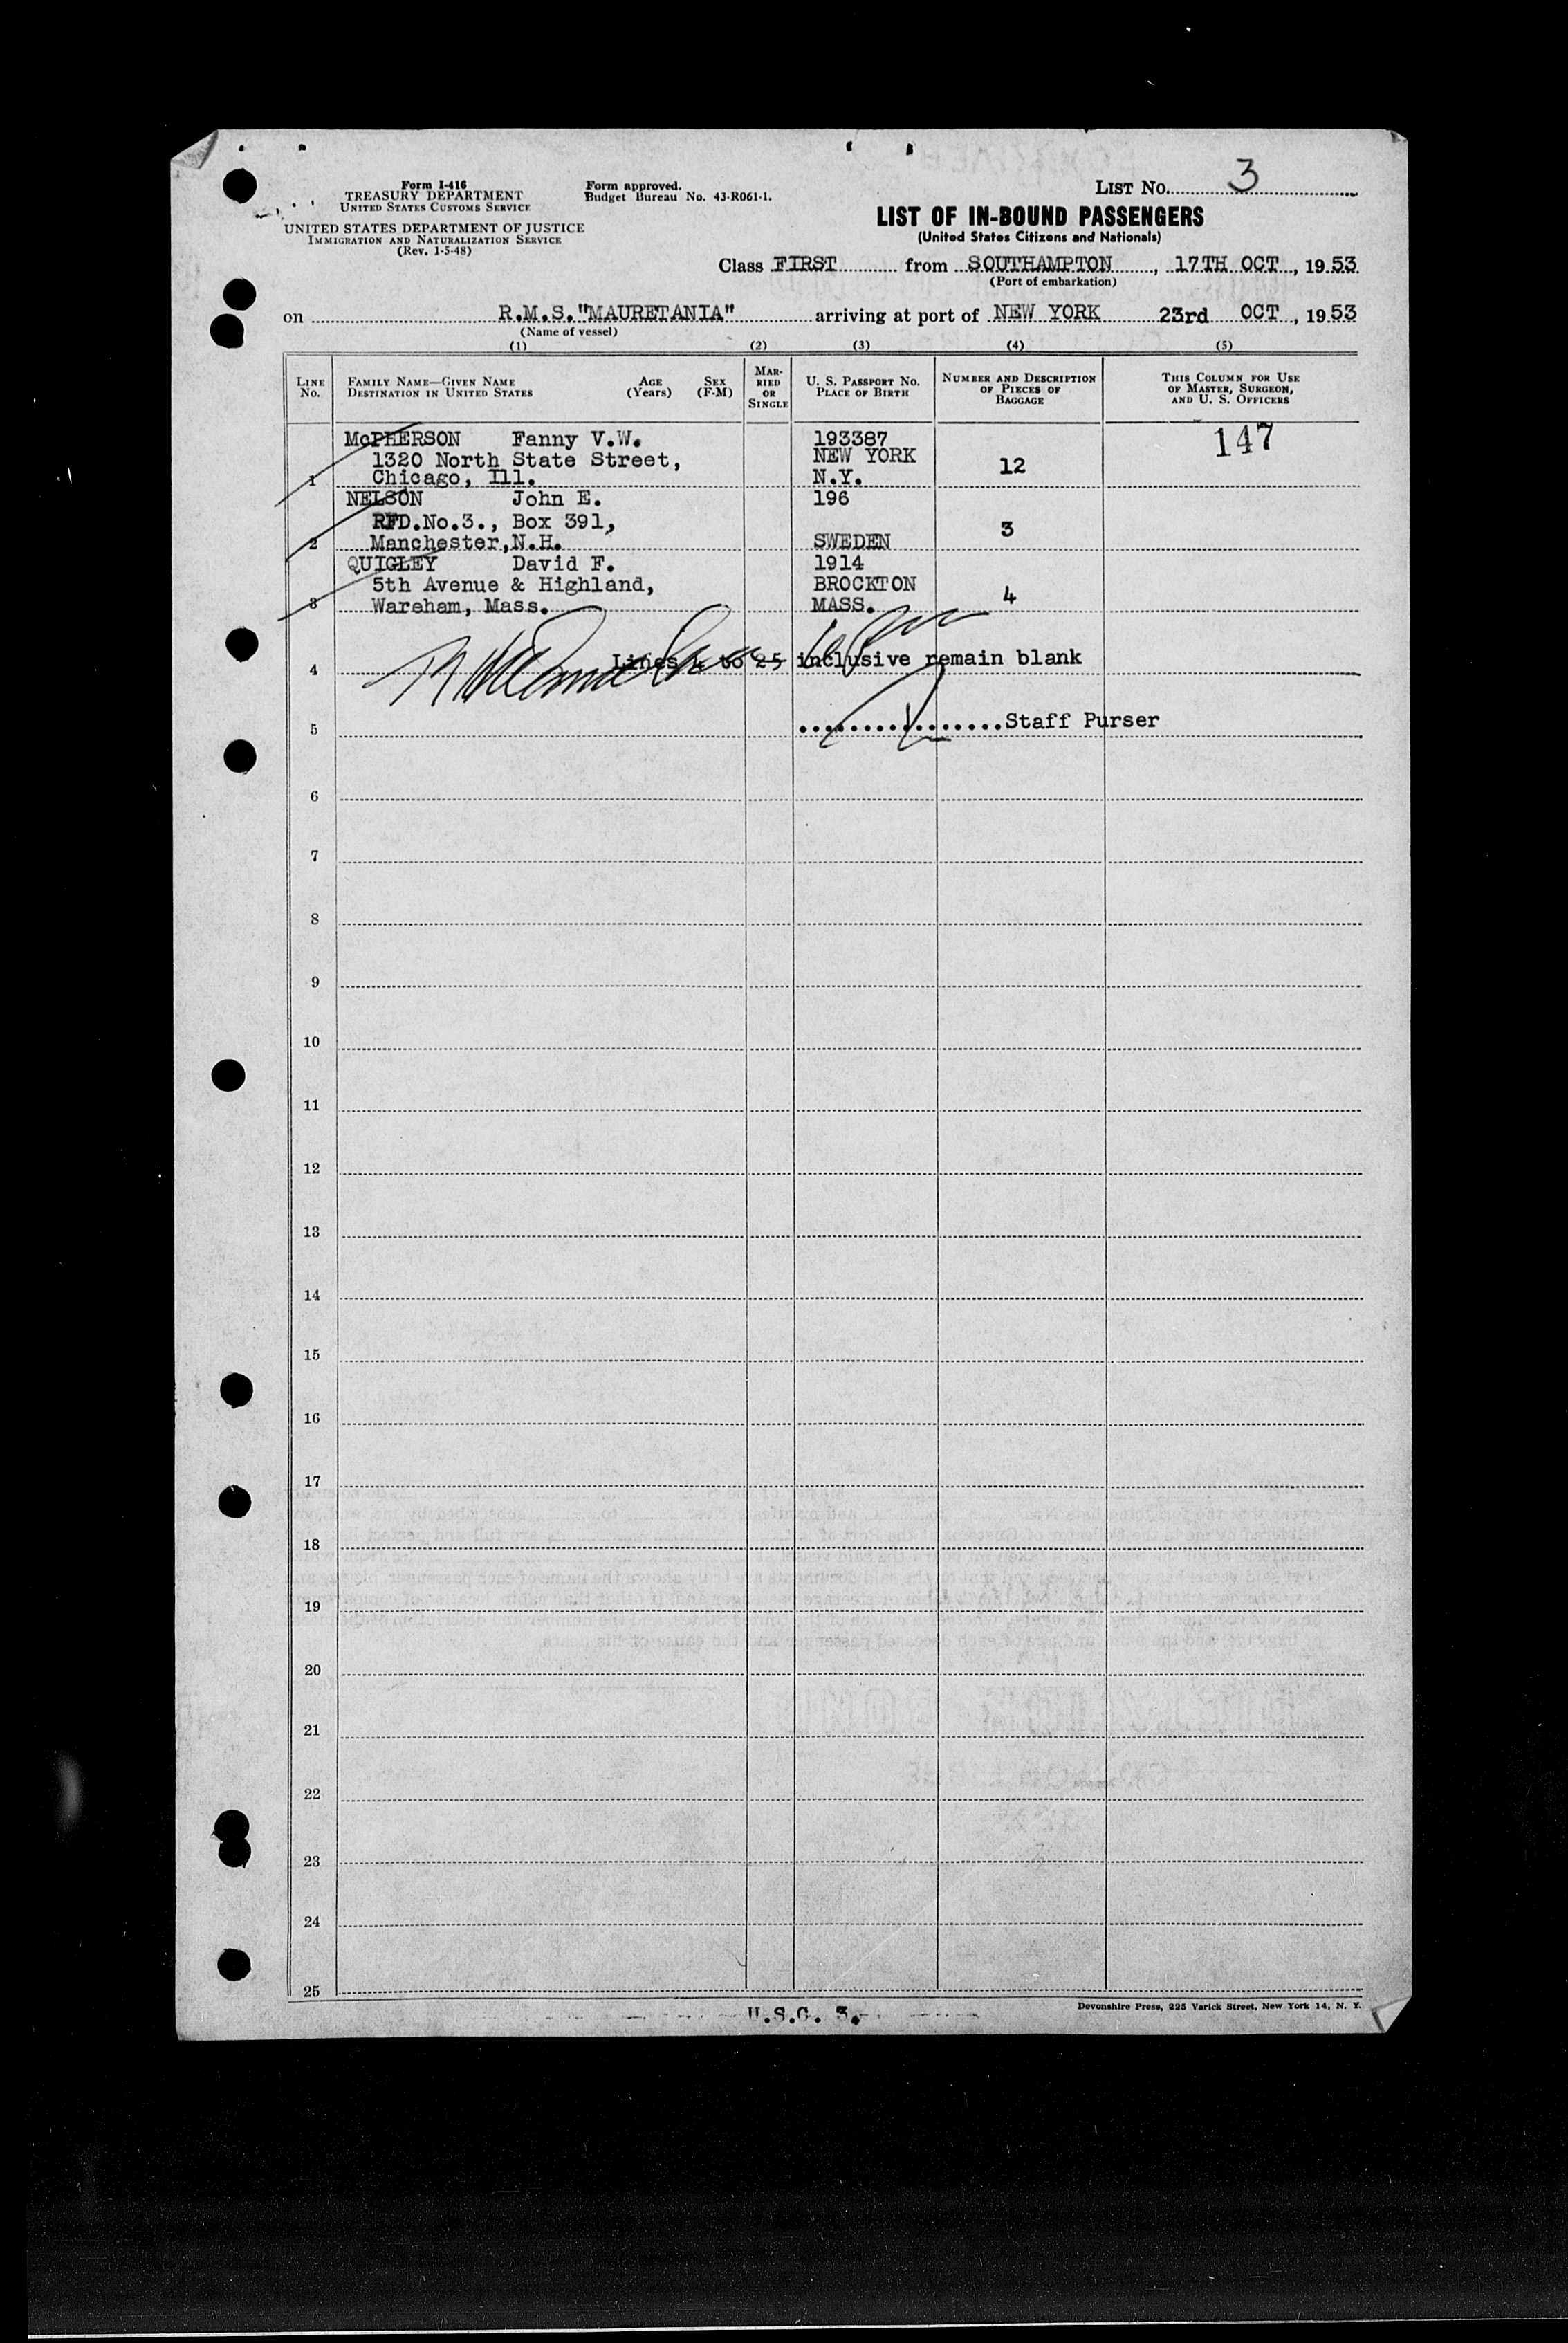 LIST NO. 3
Form I-416
TREASURY DEPARTMENT
UNITED STATES CUSTOMS SERVICE
UNITED STATES DEPARTMENT OF JUSTICE
IMMIGRATION AND NATURALIZATION SERVICE
(Rev. 1-5-48)
Form approved.
Budget Bureau No. 43-R061-1.
LIST OF IN-BOUND PASSENGERS
(United States Citizens and Nationals)
Class FIRST from SOUTHAMPTON, 17TH OCT, 1953
(Port of embarkation)
on R.M.S."MAURETANIA" arriving at port of NEW YORK 23rd OCT, 1953
(Name of vessel)
(1) (2) (3) (4) (5)
LINE NO.
FAMILY NAME—GIVEN NAME
DESTINATION IN UNITED STATES
AGE (Years)
SEX (F-M)
MARRIED OR SINGLE
U. S. PASSPORT NO.
PLACE OF BIRTH
NUMBER AND DESCRIPTION OF PIECES OF BAGGAGE
THIS COLUMN FOR USE OF MASTER, SURGEON, AND U. S. OFFICERS
McPHERSON Fanny V.W. 193387 147
1320 North State Street, NEW YORK 12
1 Chicago, Ill. N.Y.
NELSON John E. 196
RFD.No.3., Box 391, 3
2 Manchester,N.H. SWEDEN
QUIGLEY David F. 1914
5th Avenue & Highland, BROCKTON 4
3 Wareham, Mass. MASS.
4 Lines 4 to 25 inclusive remain blank
5 ................Staff Purser
6
7
8
9
10
11
12
13
14
15
16
17
18
19
20
21
22
23
24
25
U.S.C. 3.
Devonshire Press, 225 Varick Street, New York 14, N. Y.